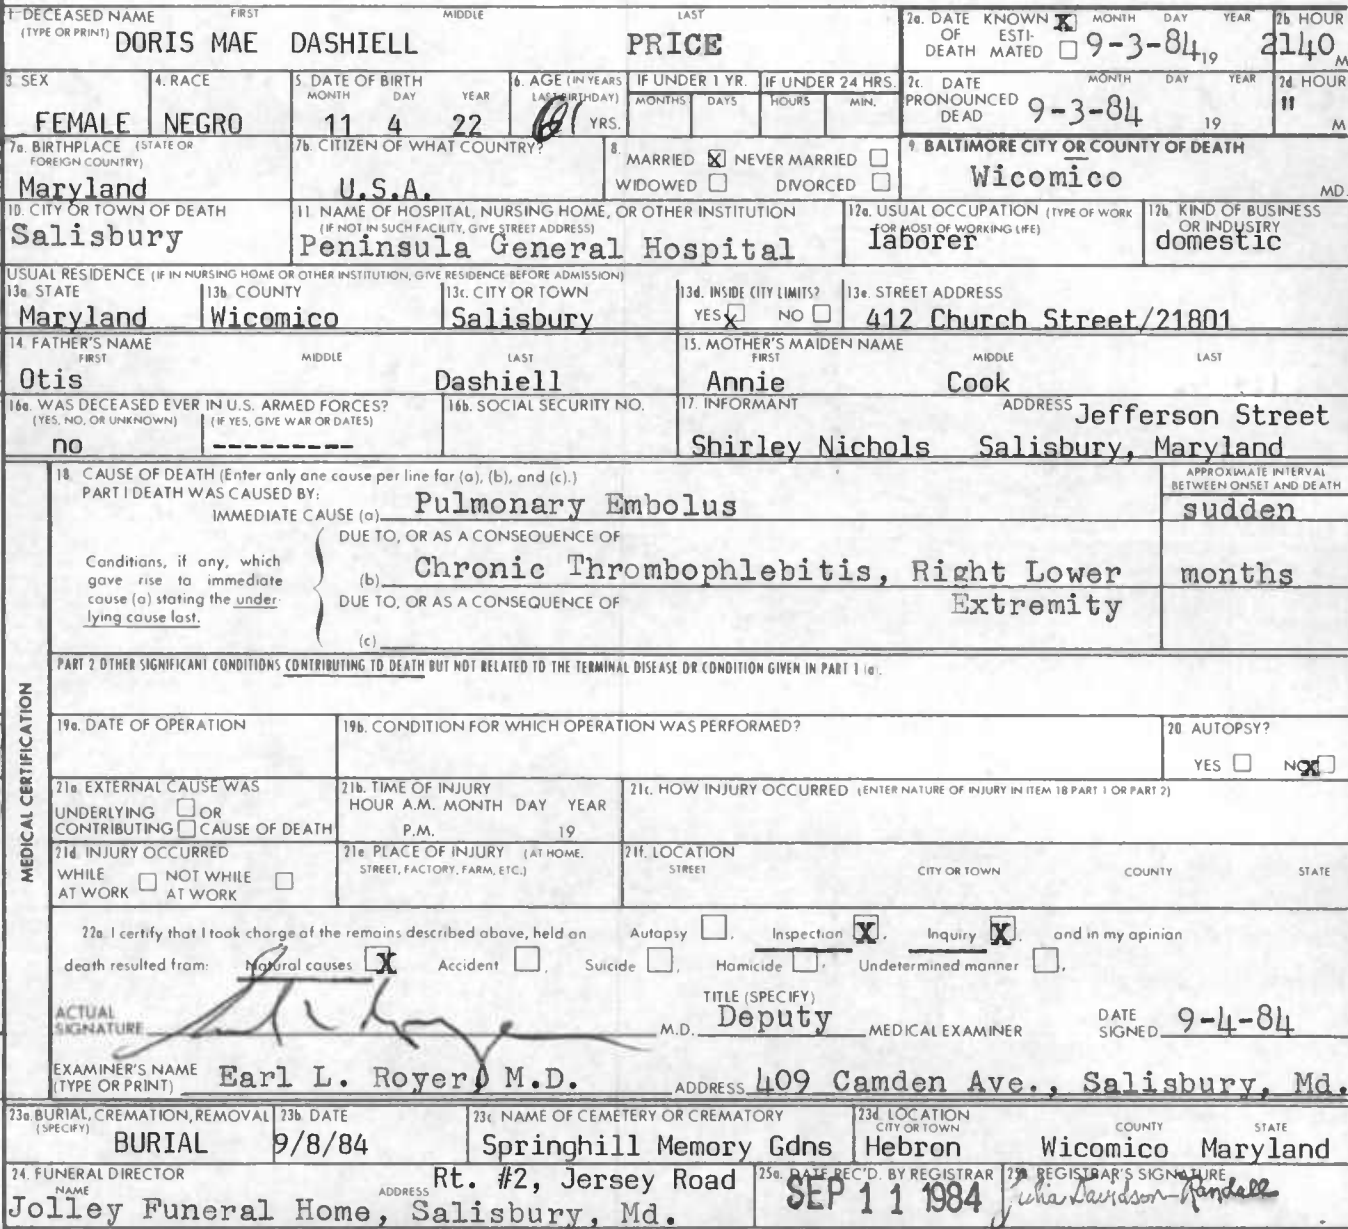 1. DECEASED NAME FIRST MIDDLE LAST
(TYPE OR PRINT) DORIS MAE DASHIELL PRICE
2a. DATE OF DEATH KNOWN X ESTIMATED MONTH DAY YEAR 9-3-84 19
2b. HOUR 2140 M
3. SEX FEMALE
4. RACE NEGRO
5. DATE OF BIRTH MONTH DAY YEAR
11 4 22
6. AGE (IN YEARS LAST BIRTHDAY) 61 YRS.
IF UNDER 1 YR. MONTHS DAYS
IF UNDER 24 HRS. HOURS MIN.
2c. DATE PRONOUNCED DEAD MONTH DAY YEAR 9-3-84 19
2d. HOUR " M
7a. BIRTHPLACE (STATE OR FOREIGN COUNTRY)
Maryland
7b. CITIZEN OF WHAT COUNTRY?
U.S.A.
8. MARRIED X NEVER MARRIED
WIDOWED DIVORCED
9. BALTIMORE CITY OR COUNTY OF DEATH
Wicomico MD.
10. CITY OR TOWN OF DEATH
Salisbury
11. NAME OF HOSPITAL, NURSING HOME, OR OTHER INSTITUTION
(IF NOT IN SUCH FACILITY, GIVE STREET ADDRESS)
Peninsula General Hospital
12a. USUAL OCCUPATION (TYPE OF WORK FOR MOST OF WORKING LIFE)
laborer
12b. KIND OF BUSINESS OR INDUSTRY
domestic
USUAL RESIDENCE (IF IN NURSING HOME OR OTHER INSTITUTION, GIVE RESIDENCE BEFORE ADMISSION)
13a. STATE
Maryland
13b. COUNTY
Wicomico
13c. CITY OR TOWN
Salisbury
13d. INSIDE CITY LIMITS?
YES X NO
13e. STREET ADDRESS
412 Church Street/21801
14. FATHER'S NAME
FIRST MIDDLE LAST
Otis Dashiell
15. MOTHER'S MAIDEN NAME
FIRST MIDDLE LAST
Annie Cook
16a. WAS DECEASED EVER IN U.S. ARMED FORCES?
(YES, NO, OR UNKNOWN) (IF YES, GIVE WAR OR DATES)
no ---------
16b. SOCIAL SECURITY NO.
17. INFORMANT ADDRESS Jefferson Street
Shirley Nichols Salisbury, Maryland
MEDICAL CERTIFICATION
18. CAUSE OF DEATH (Enter only one cause per line for (a), (b), and (c).)
PART I DEATH WAS CAUSED BY:
IMMEDIATE CAUSE (a) Pulmonary Embolus
APPROXIMATE INTERVAL BETWEEN ONSET AND DEATH
sudden
Conditions, if any, which gave rise to immediate cause (a) stating the underlying cause last.
DUE TO, OR AS A CONSEQUENCE OF
(b) Chronic Thrombophlebitis, Right Lower months
DUE TO, OR AS A CONSEQUENCE OF Extremity
(c)
PART 2 OTHER SIGNIFICANT CONDITIONS CONTRIBUTING TO DEATH BUT NOT RELATED TO THE TERMINAL DISEASE OR CONDITION GIVEN IN PART 1 (a).
19a. DATE OF OPERATION
19b. CONDITION FOR WHICH OPERATION WAS PERFORMED?
20. AUTOPSY?
YES NO X
21a. EXTERNAL CAUSE WAS
UNDERLYING OR
CONTRIBUTING CAUSE OF DEATH
21b. TIME OF INJURY
HOUR A.M. MONTH DAY YEAR
P.M. 19
21c. HOW INJURY OCCURRED (ENTER NATURE OF INJURY IN ITEM 18 PART 1 OR PART 2)
21d. INJURY OCCURRED
WHILE AT WORK NOT WHILE AT WORK
21e. PLACE OF INJURY (AT HOME, STREET, FACTORY, FARM, ETC.)
21f. LOCATION
STREET CITY OR TOWN COUNTY STATE
22a. I certify that I took charge of the remains described above, held an Autopsy, Inspection X, Inquiry X, and in my opinion
death resulted from: Natural causes X Accident, Suicide, Homicide, Undetermined manner.
ACTUAL SIGNATURE M.D.
TITLE (SPECIFY) Deputy MEDICAL EXAMINER
DATE SIGNED 9-4-84
EXAMINER'S NAME (TYPE OR PRINT) Earl L. Royer, M.D.
ADDRESS 409 Camden Ave., Salisbury, Md.
23a. BURIAL, CREMATION, REMOVAL (SPECIFY)
BURIAL
23b. DATE
9/8/84
23c. NAME OF CEMETERY OR CREMATORY
Springhill Memory Gdns
23d. LOCATION
CITY OR TOWN COUNTY STATE
Hebron Wicomico Maryland
24. FUNERAL DIRECTOR
NAME ADDRESS Rt. #2, Jersey Road
Jolley Funeral Home, Salisbury, Md.
25a. DATE REC'D. BY REGISTRAR
SEP 11 1984
25b. REGISTRAR'S SIGNATURE
Julia Davidson-Randall